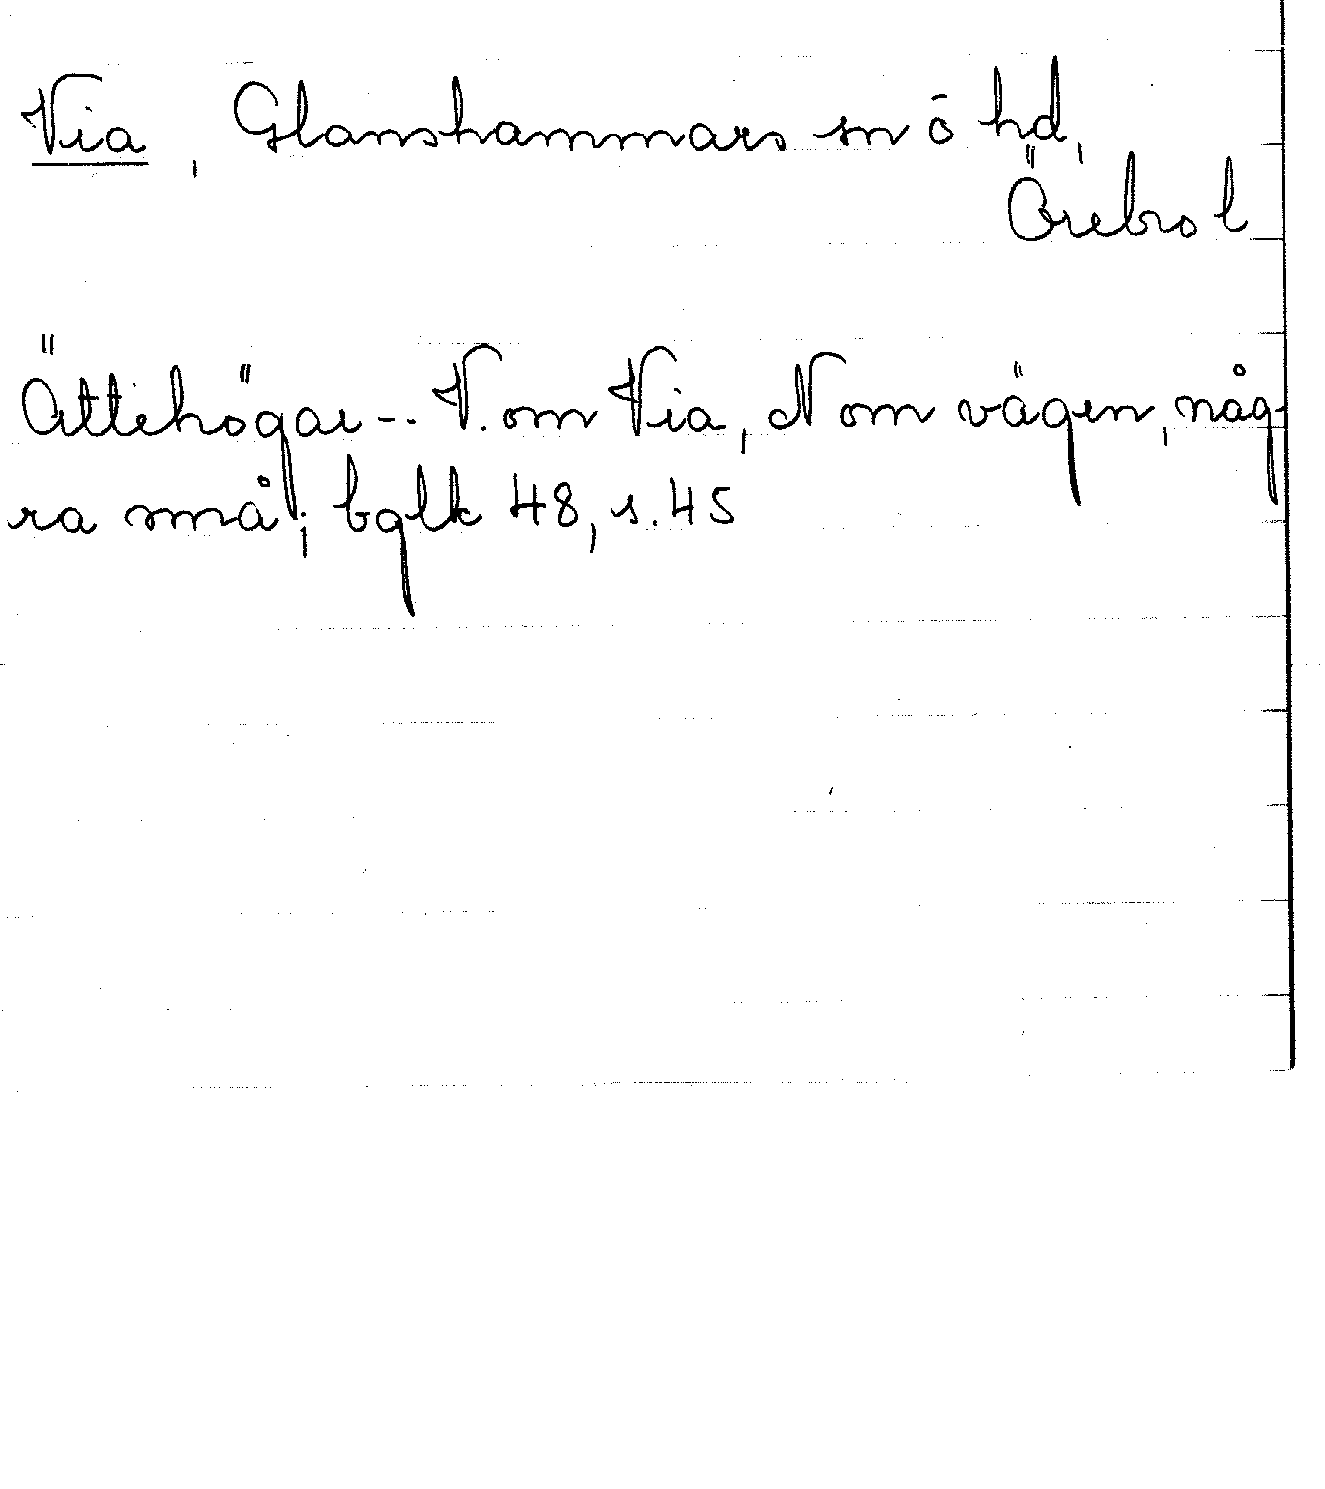 Via, Glanshammars sn ō hd,
Örebro l
Ättehögar -.. V. om Via, N om vägen, någ-
ra små; bglk 48, s. 45